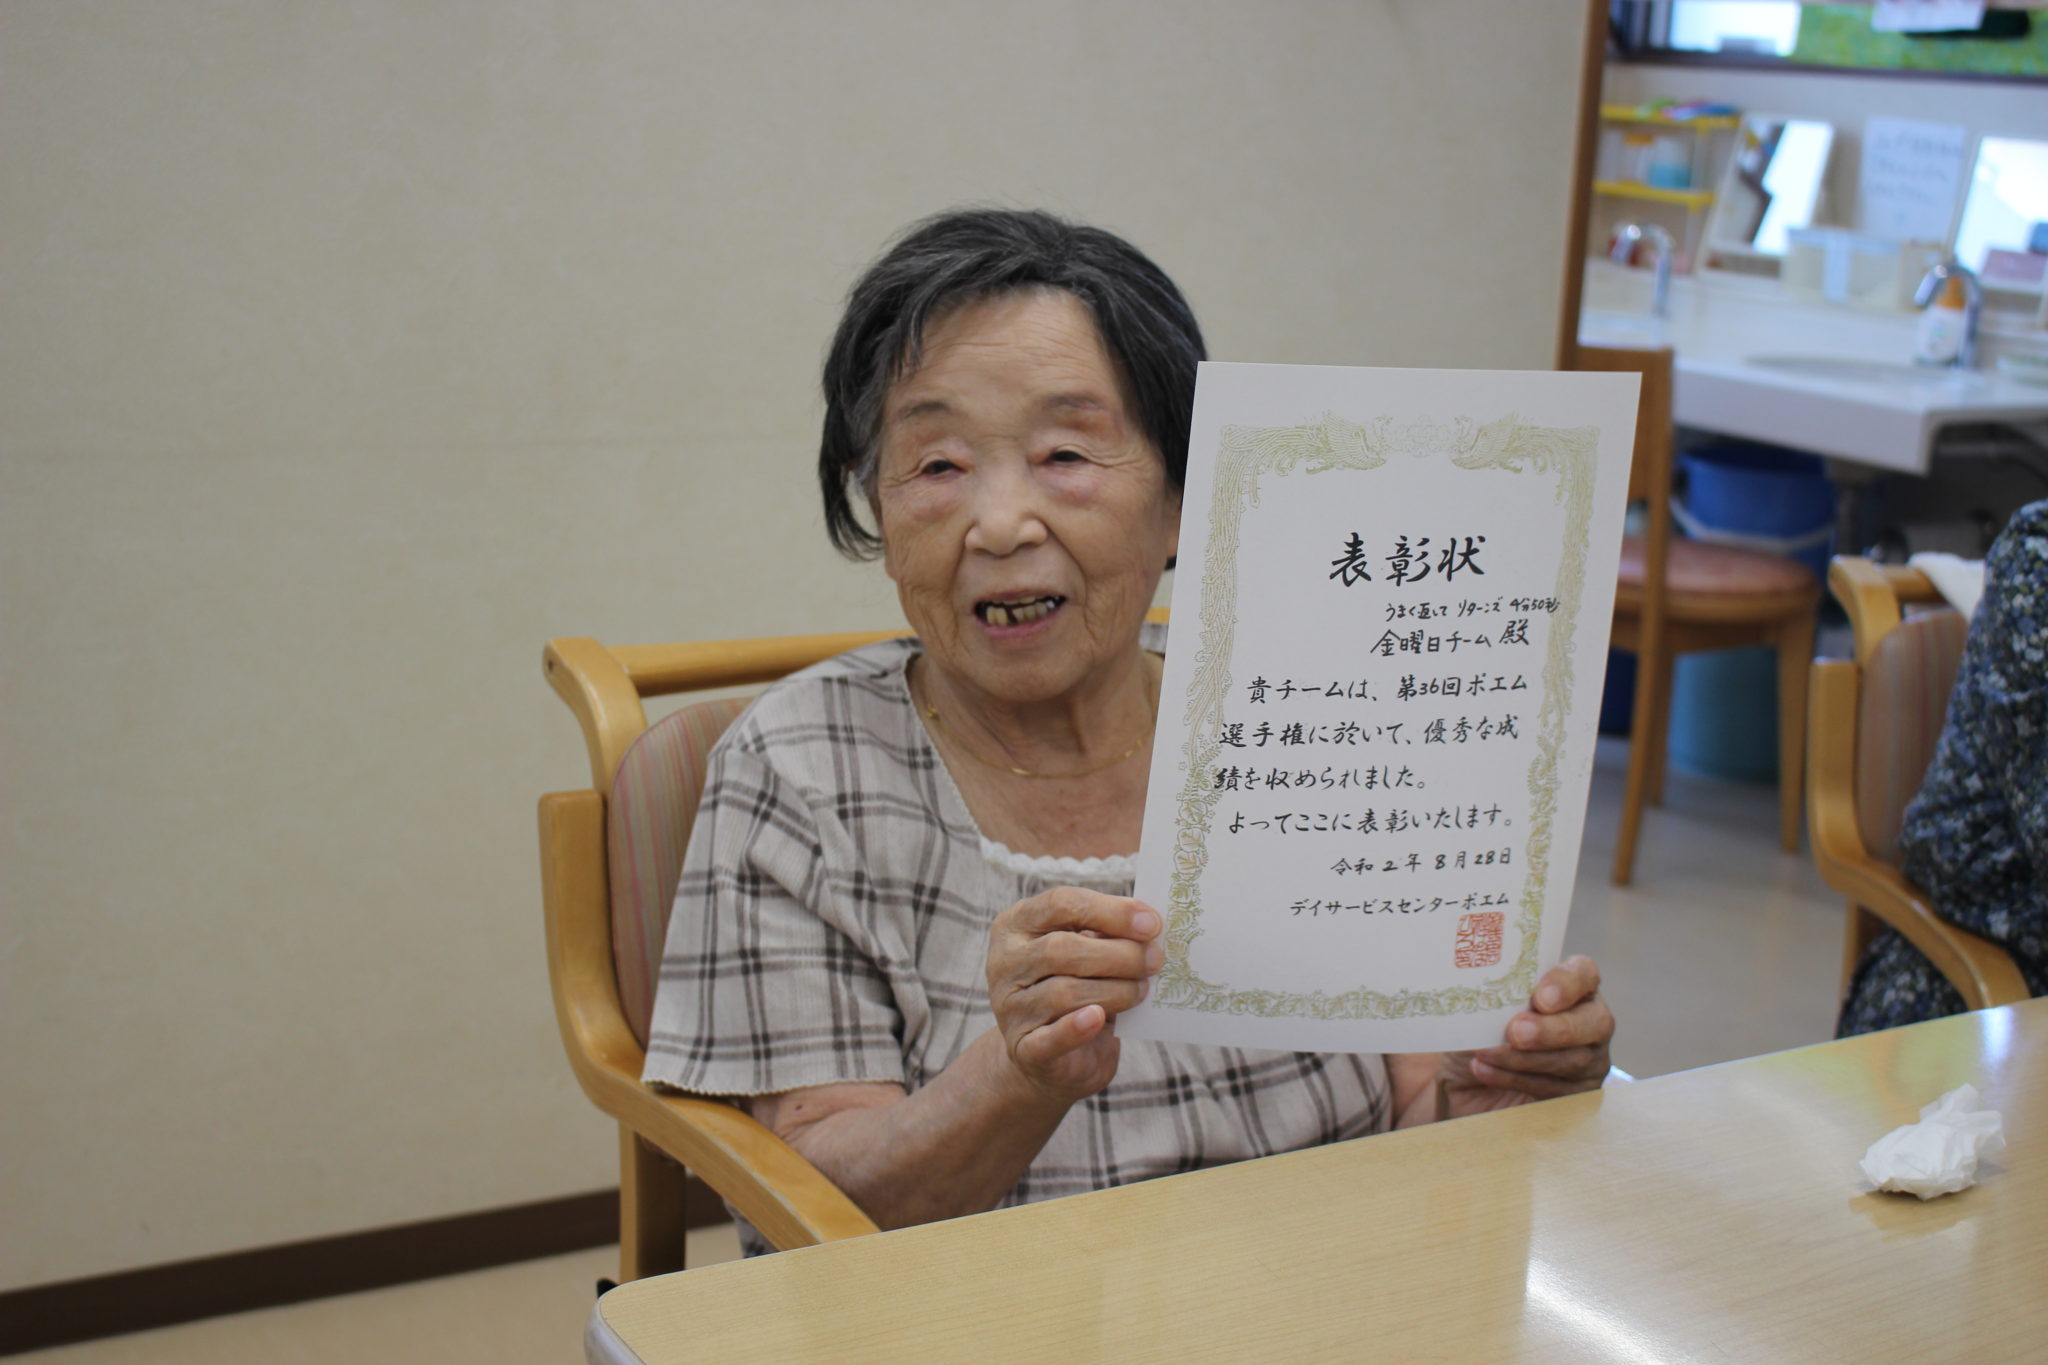 表彰状
うまく返して リターンズ 4分50秒
金曜日チーム 殿
貴チームは、第36回ポエム
選手権に於いて、優秀な成
績を収められました。
よってここに表彰いたします。
令和2年8月28日
デイサービスセンターポエム